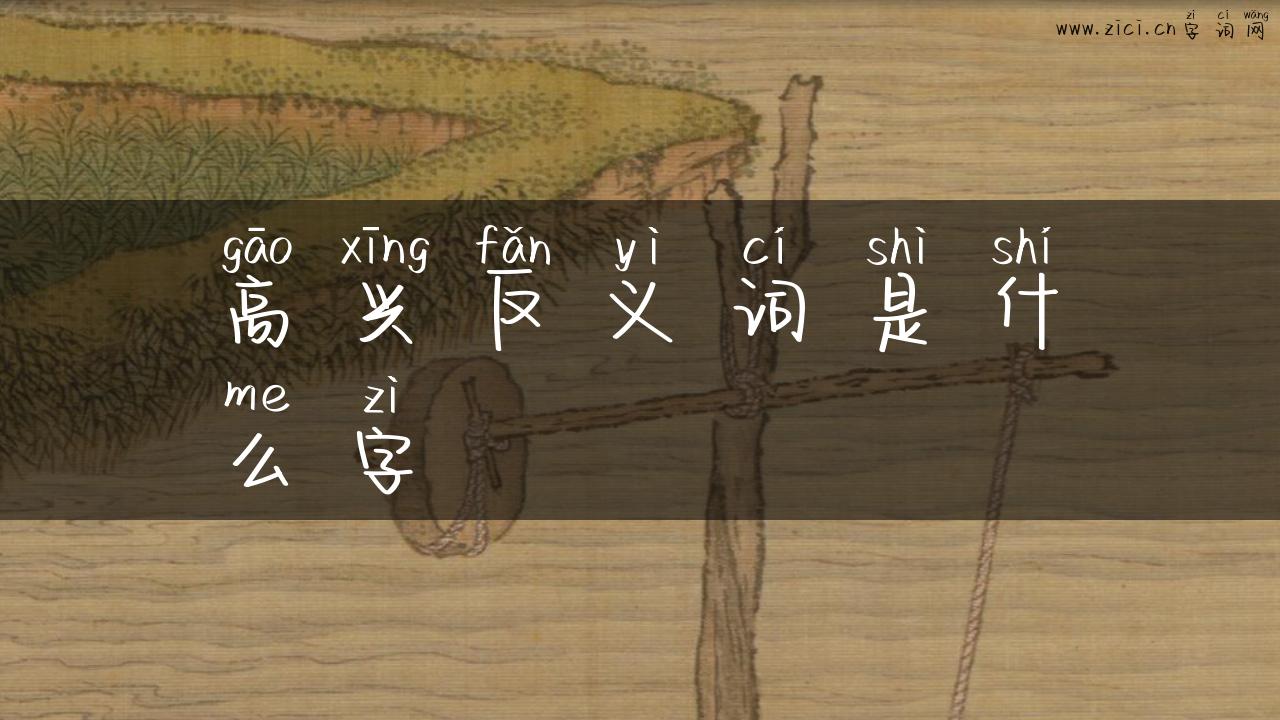 zì cí wǎng
www.zici.cn 字词网
gāo xīng fǎn yì cí shì shí
高兴反义词是什
me zì
么字